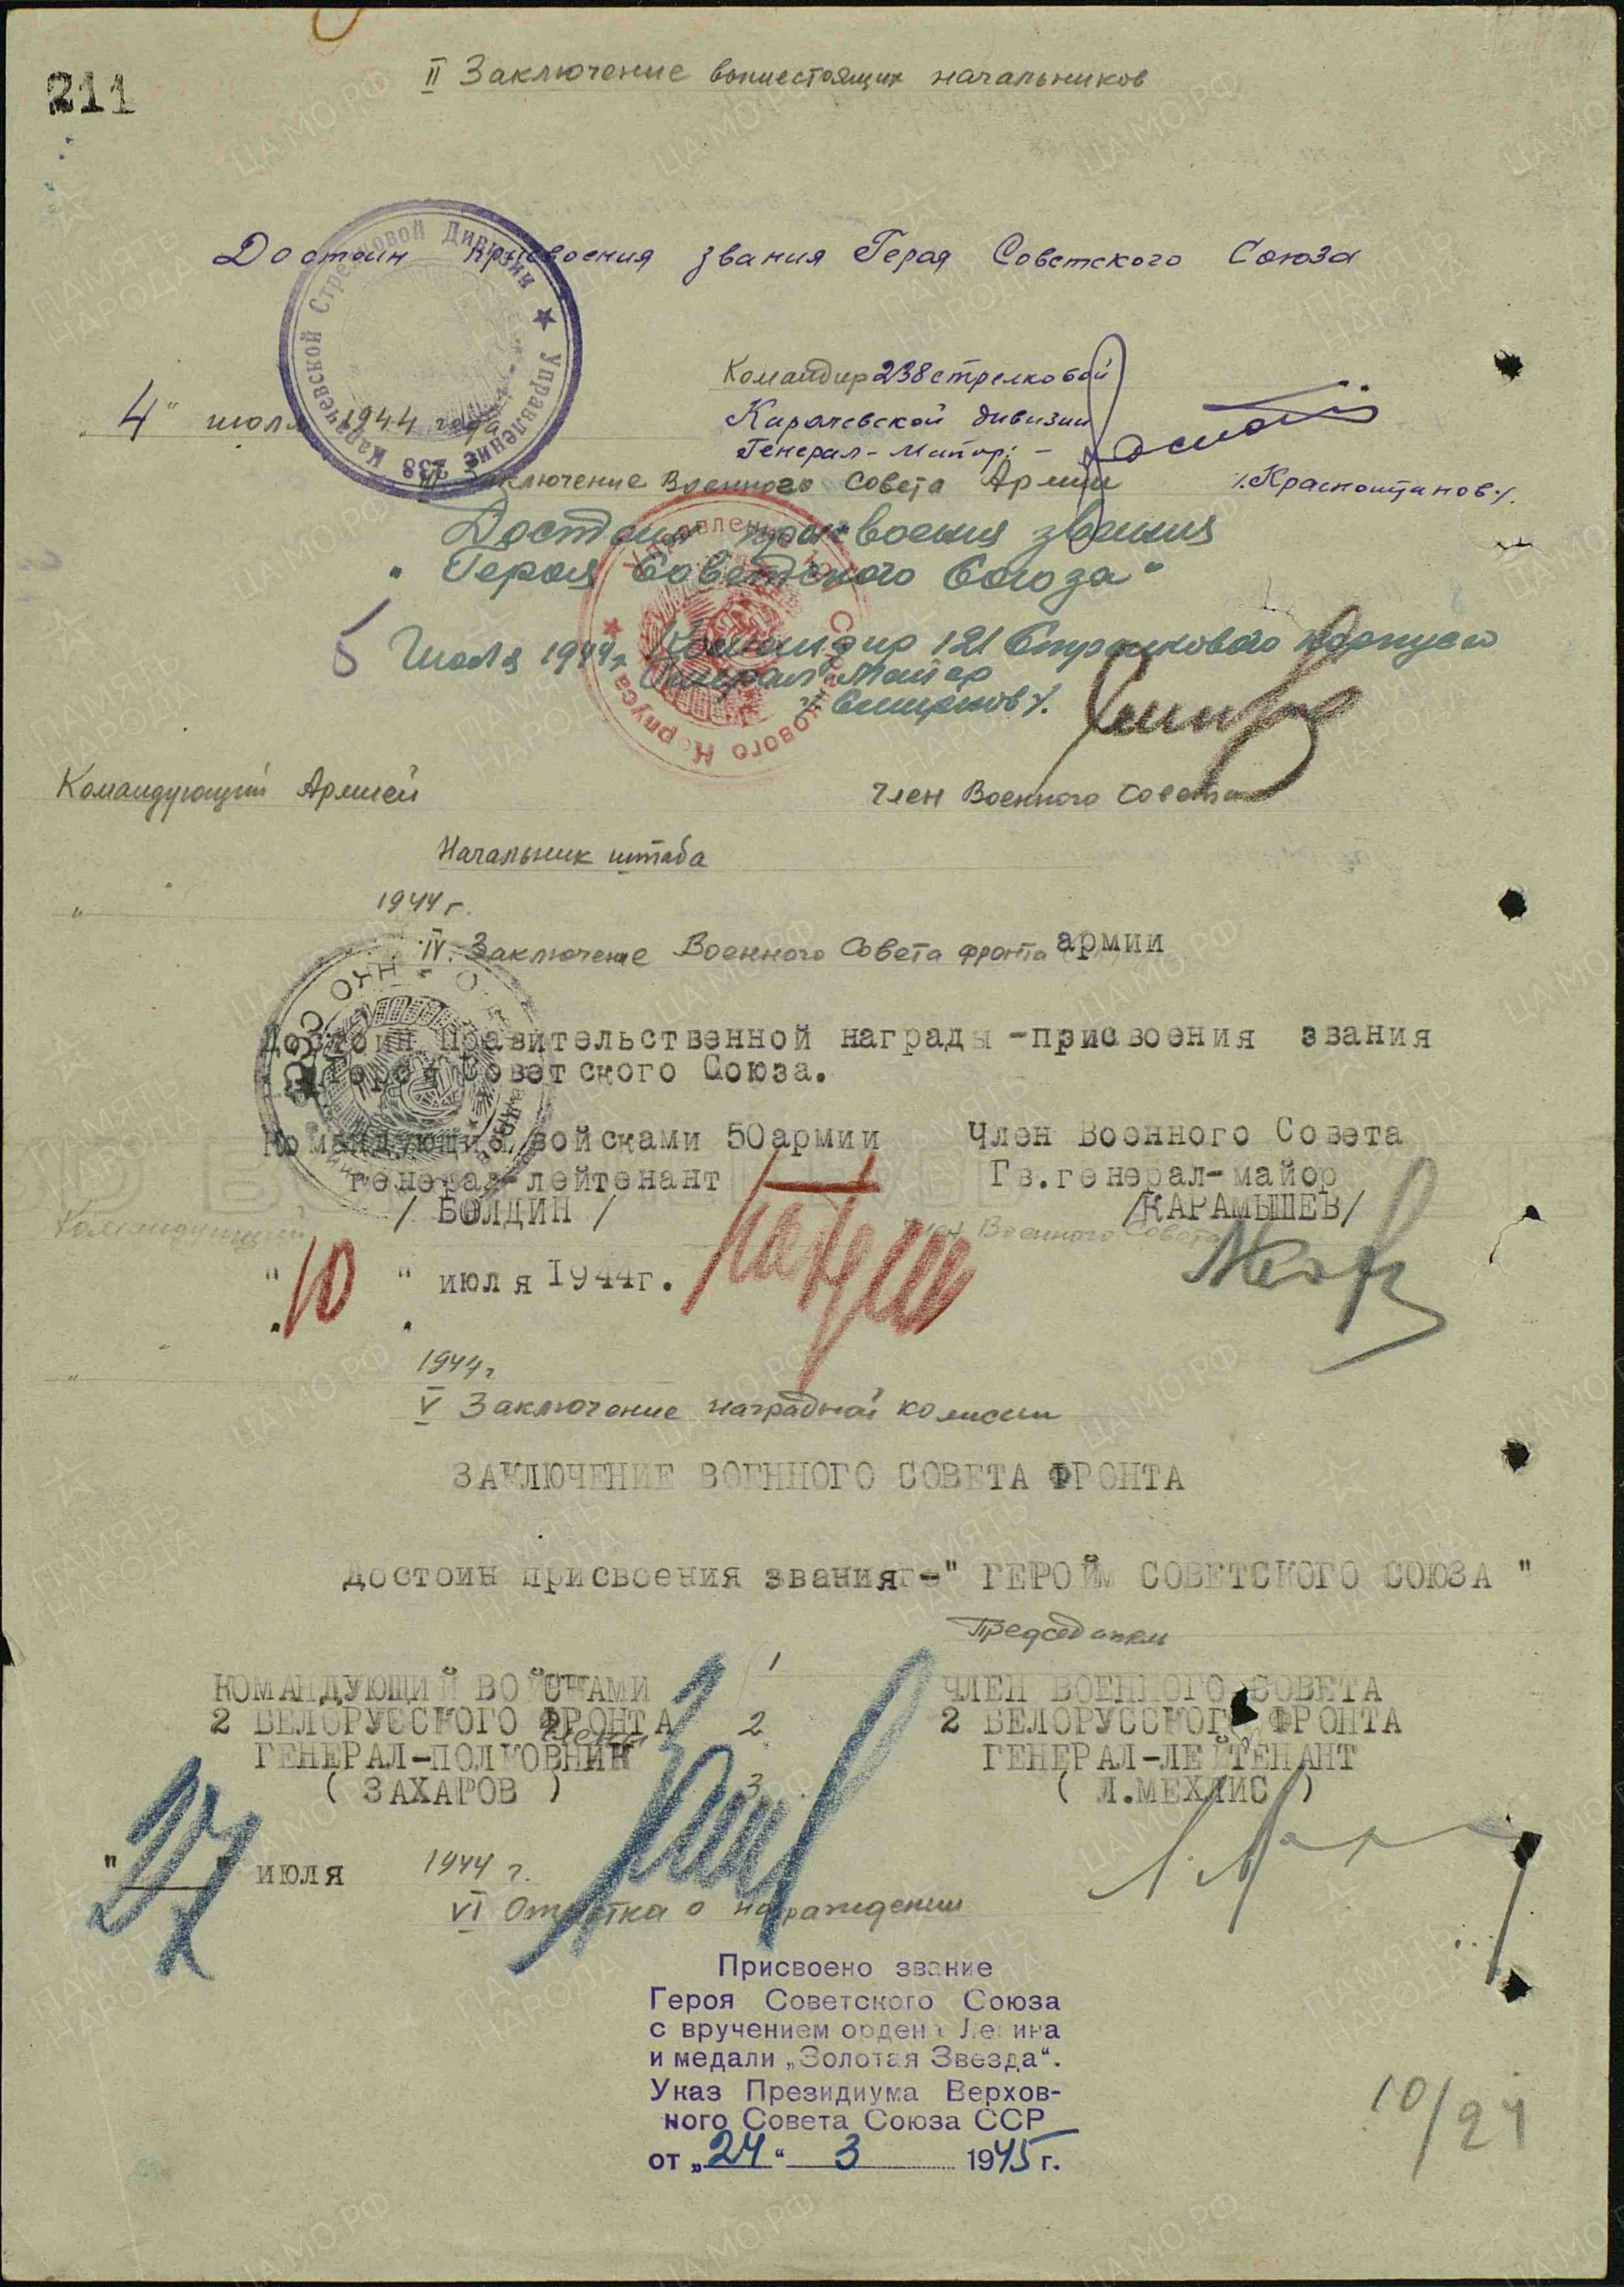 211
II Заключение вышестоящих начальников
Достоин присвоения звания Героя Советского Союза
Командир 238 стрелковой
Карачевской дивизии
Генерал-Майор: -
/.Красноштанов./.
"4" июля 1944 года
Управление 238 Карачевской Стрелковой Дивизии
III Заключение Военного Совета Армии
Достоин присвоения звания
"Героя Советского Союза"
5 Июля 1944 г. Командир 121 Стрелкового Корпуса
Генерал Майор
/.Смирнов/.
Управление Стрелкового Корпуса
Командующий Армией Член Военного Совета
Начальник штаба
" 1944 г.
IV. Заключение Военного Совета фронта армии
Достоин правительственной награды-присвоения звания
Героя Советского Союза.
Командующий войсками 50 армии Член Военного Совета
генерал-лейтенант Гв.генерал-майор
/ БОЛДИН / /КАРАМЫШЕВ/
Командующий Член Военного Совета
"10" июля 1944г.
" 1944 г
V Заключение наградной комисии
ЗАКЛЮЧЕНИЕ ВОЕННОГО СОВЕТА ФРОНТА
Достоин присвоения звания-" ГЕРОЙ СОВЕТСКОГО СОЮЗА "
Председатель
1
КОМАНДУЮЩИЙ ВОЙСКАМИ ЧЛЕН ВОЕННОГО СОВЕТА
2 БЕЛОРУССКОГО ФРОНТА 2 2 БЕЛОРУССКОГО ФРОНТА
Члены
ГЕНЕРАЛ-ПОЛКОВНИК ГЕНЕРАЛ-ЛЕЙТЕНАНТ
( ЗАХАРОВ ) 3 ( Л.МЕХЛИС )
" июля 1944 г.
VI Отметка о награждении
Присвоено звание
Героя Советского Союза
с вручением ордена Ленина
и медали „Золотая Звезда“.
Указ Президиума Верхов-
ного Совета Союза ССР
от „24“ 3 1945 г.
10/24
ЦАМО.РФ
ПАМЯТЬ НАРОДА